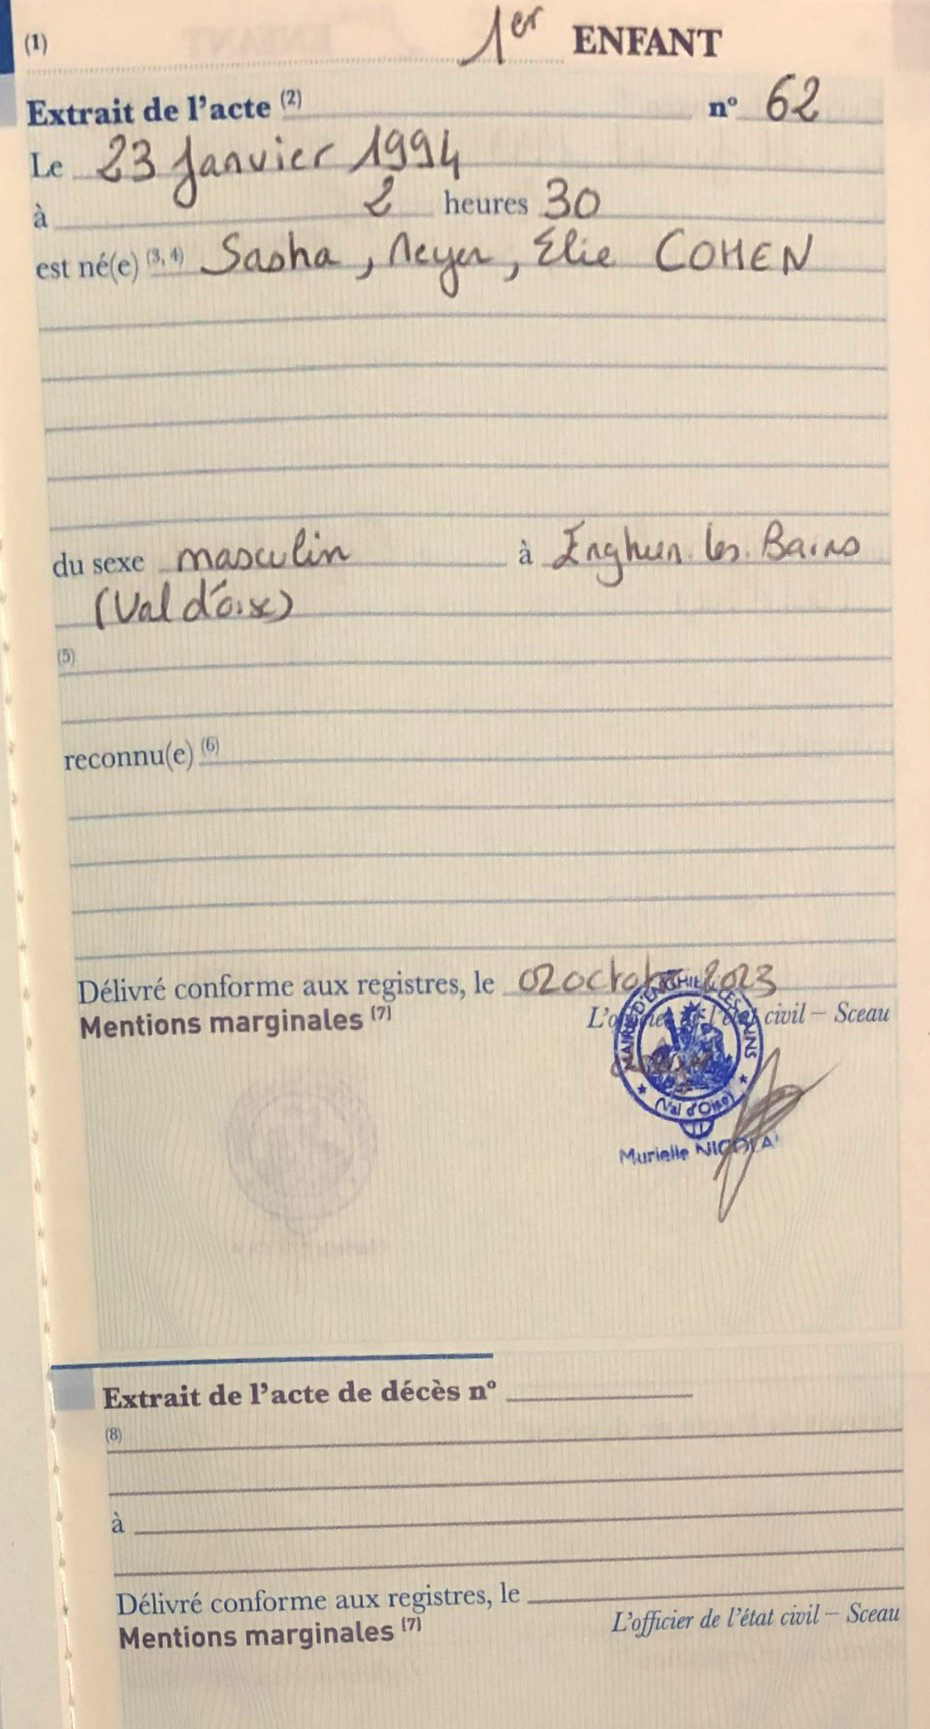 (1) 1er ENFANT
Extrait de l'acte (2) n° 62
Le 23 Janvier 1994
à 2 heures 30
est né(e) (3, 4) Sasha, Meyer, Elie COHEN
du sexe masculin à Enghien les Bains
(Val d'oise)
(5)
reconnu(e) (6)
Délivré conforme aux registres, le 02 octobre 2023
Mentions marginales (7) L'officier de l'état civil – Sceau
MAIRIE D'ENGHIEN LES BAINS
(Val d'Oise)
Murielle NICOLAÏ
Extrait de l'acte de décès n°
(8)
à
Délivré conforme aux registres, le
Mentions marginales (7) L'officier de l'état civil – Sceau